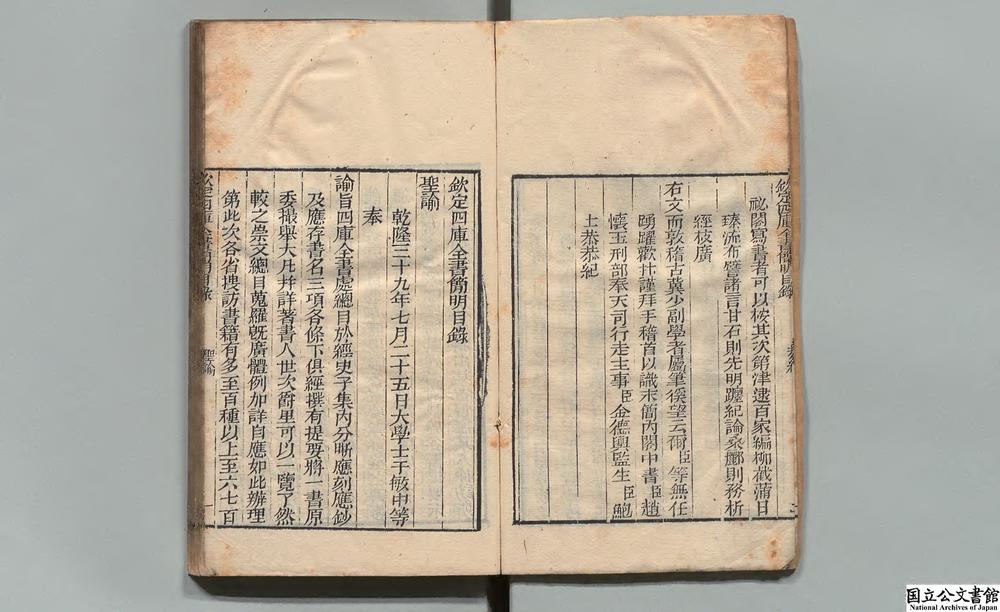 欽定四庫全書簡明目錄
秘閣寫書者可以桉其次第津逮百家編柳截蒲日
臻流布譬諸言甘石則先明躔紀論桑酈則務析
經枝廣
右文而敦稽古冀少副學者屬筆徯望云爾臣等無任
踴躍歡抃謹拜手稽首以識末簡內閣中書臣趙
懷玉刑部奉天司行走主事臣金德輿監生臣鮑
士恭恭紀
欽定四庫全書簡明目錄
聖諭
乾隆三十九年七月二十五日大學士于敏中等
奉
諭旨四庫全書處總目於經史子集內分晰應刻應鈔
及應存書名三項各條下俱經撰有提要將一書原
委撮舉大凡并詳著書人世次爵里可以一覽了然
較之崇文總目蒐羅旣廣體例加詳自應如此辦理
第此次各省搜訪書籍有多至百種以上至六七百
欽定四庫全書簡明目錄
聖諭
一
国立公文書館
National Archives of Japan